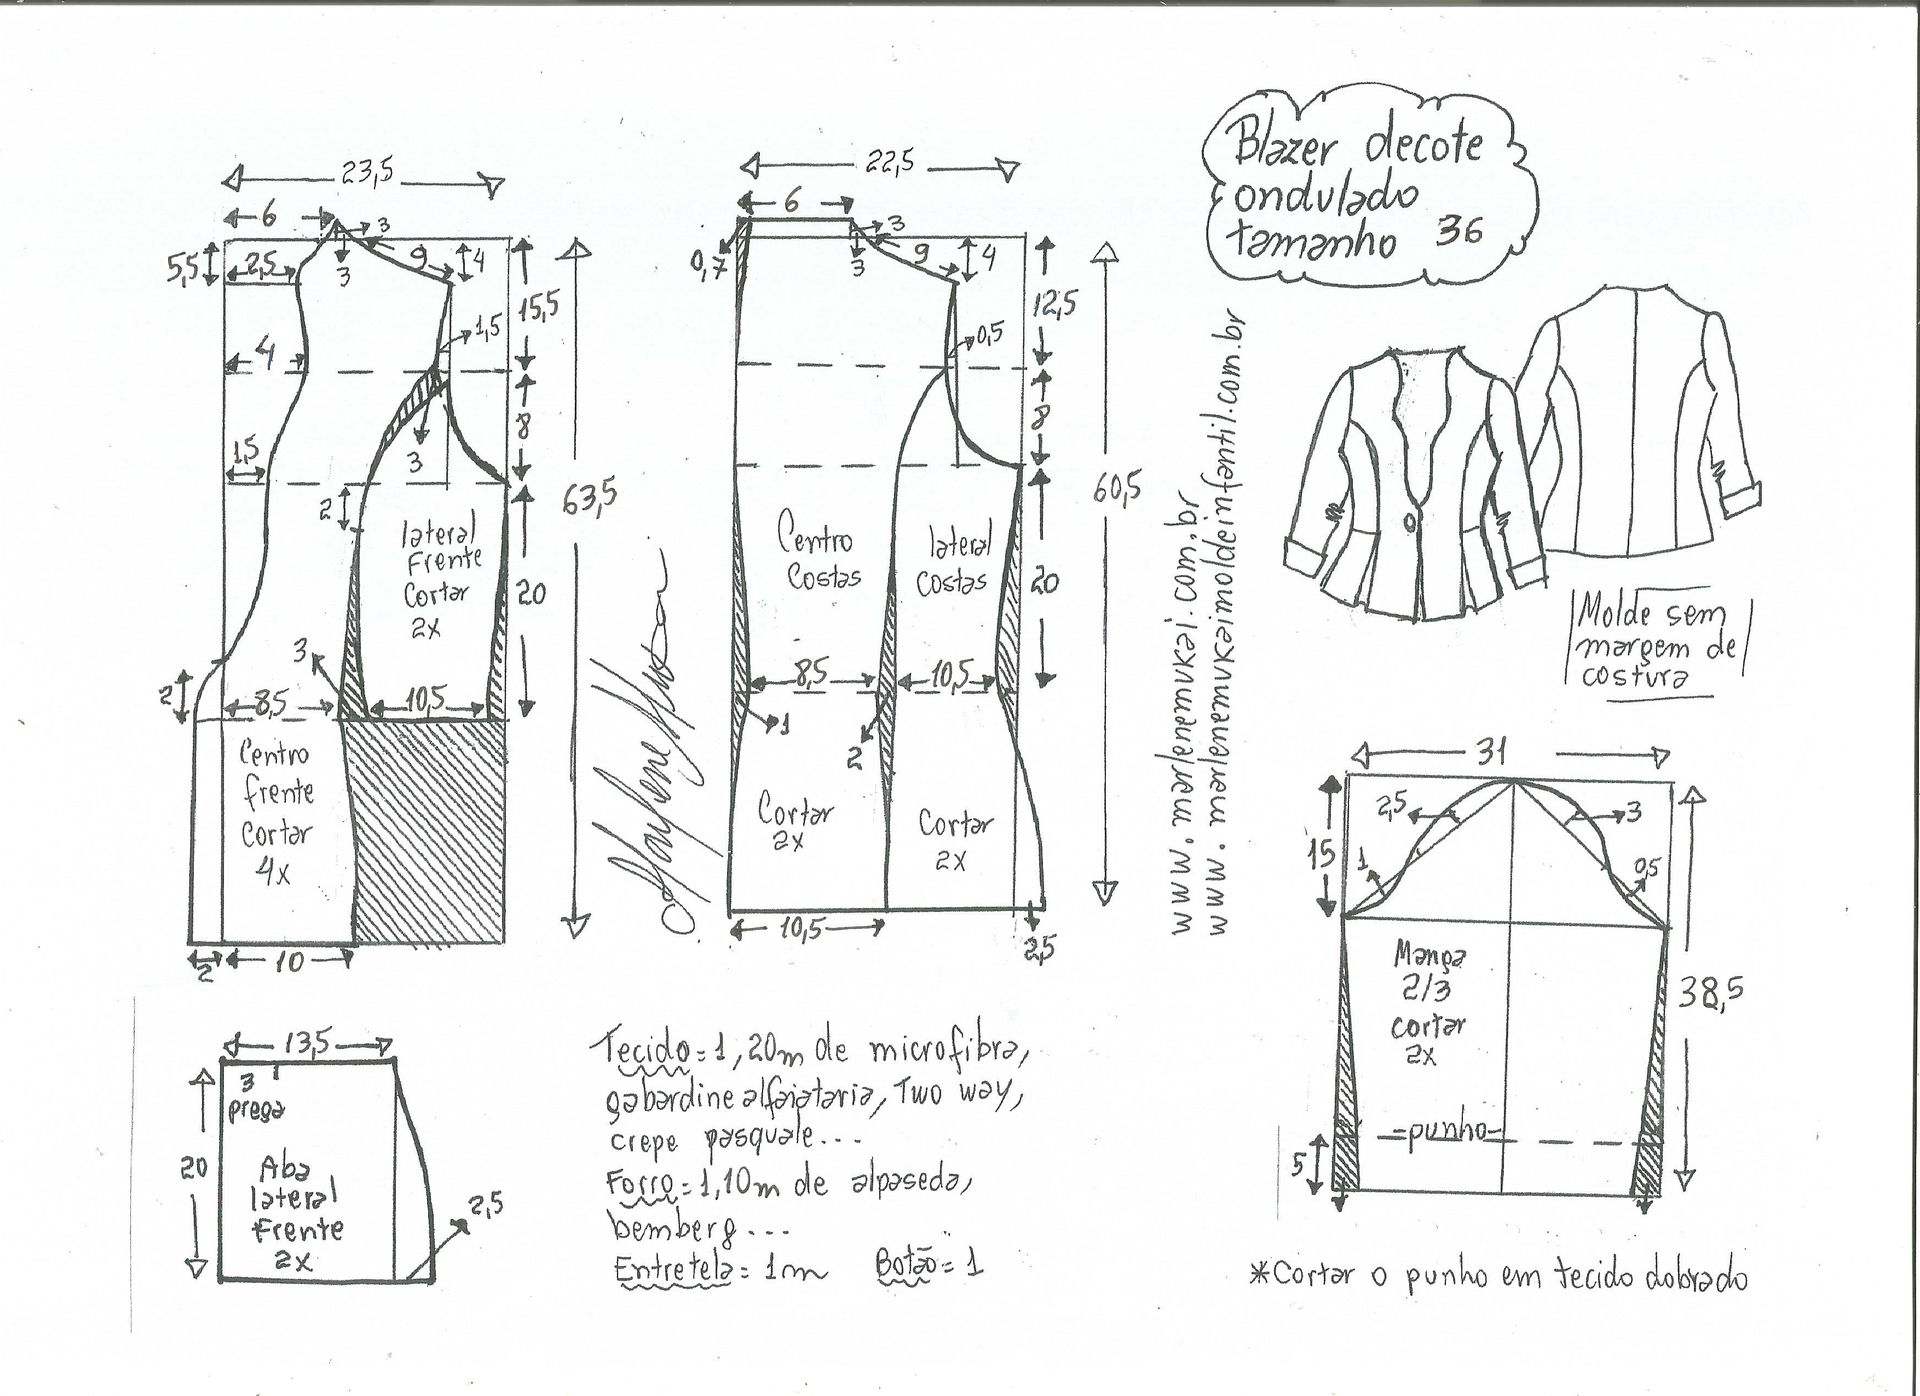 Blazer decote
ondulado
tamanho 36
23,5
6
3
3
9
4
5,5
2,5
15,5
1,5
4
8
3
1,5
2
63,5
lateral
Frente
Cortar
2x
20
3
2
8,5
10,5
Centro
frente
Cortar
4x
2
10
22,5
6
3
3
9
4
0,7
12,5
0,5
8
60,5
Centro
Costas
lateral
costas
20
8,5
10,5
1
2
Cortar
2x
Cortar
2x
10,5
2,5
www.marlenemukai.com.br
www.marlenemukaimoldeinfantil.com.br
Molde sem
margem de
costura
31
2,5
3
15
1
0,5
Manga
2/3
cortar
2x
38,5
punho
5
*Cortar o punho em tecido dobrado
13,5
3
prega
20
Aba
lateral
Frente
2x
2,5
Tecido = 1,20m de microfibra,
gabardine alfaiataria, Two way,
crepe pasquale...
Forro = 1,10m de alpaseda,
bemberg...
Entretela = 1m Botão = 1